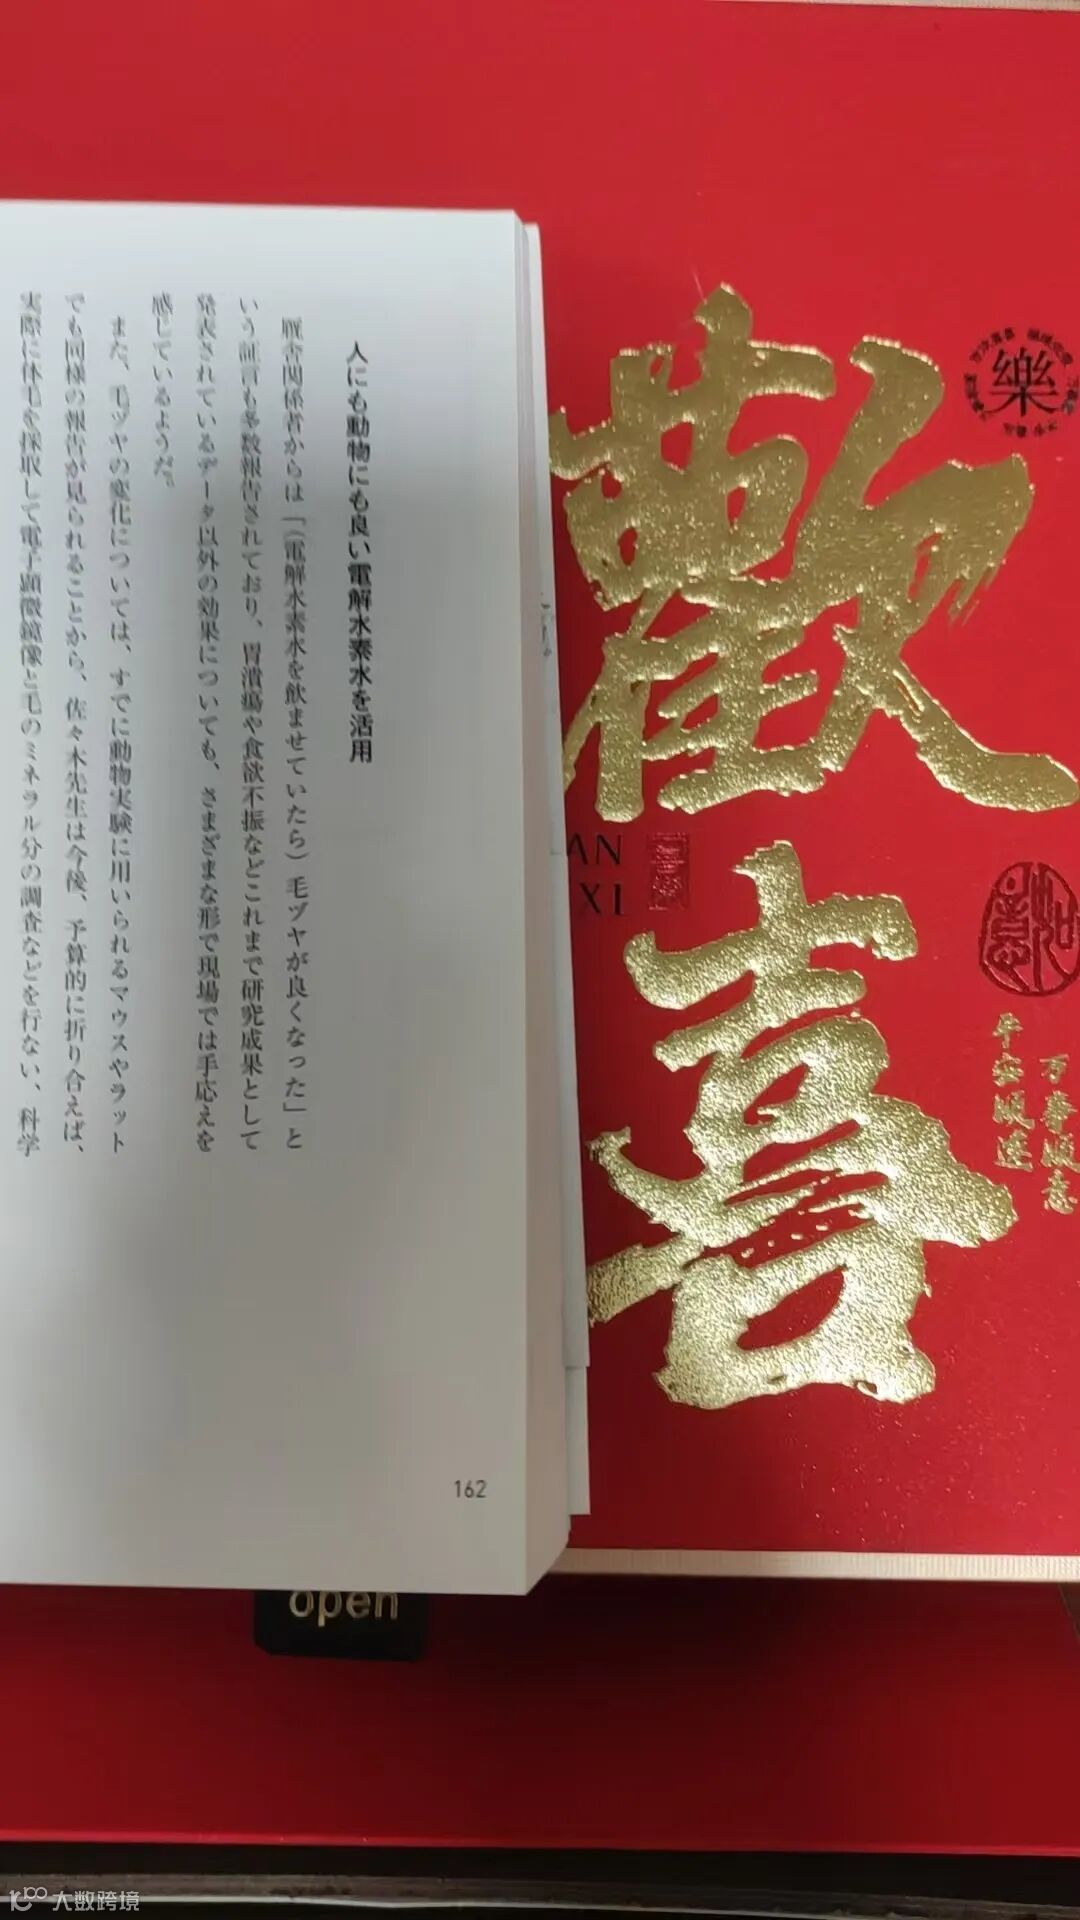 人にも動物にも良い電解水素水を活用
厩舎関係者からは「(電解水素水を飲ませていたら)毛ヅヤが良くなった」と
いう証言も多数報告されており、胃潰瘍や食欲不振などこれまで研究成果として
発表されているデータ以外の効果についても、さまざまな形で現場では手応えを
感じているようだ。
また、毛ヅヤの変化については、すでに動物実験に用いられるマウスやラット
でも同様の報告が見られることから、佐々木先生は今後、予算的に折り合えば、
実際に体毛を採取して電子顕微鏡像と毛のミネラル分の調査などを行ない、科学
162
歡喜
樂
AN
XI
万事順意
平安順遂
open
大数跨境